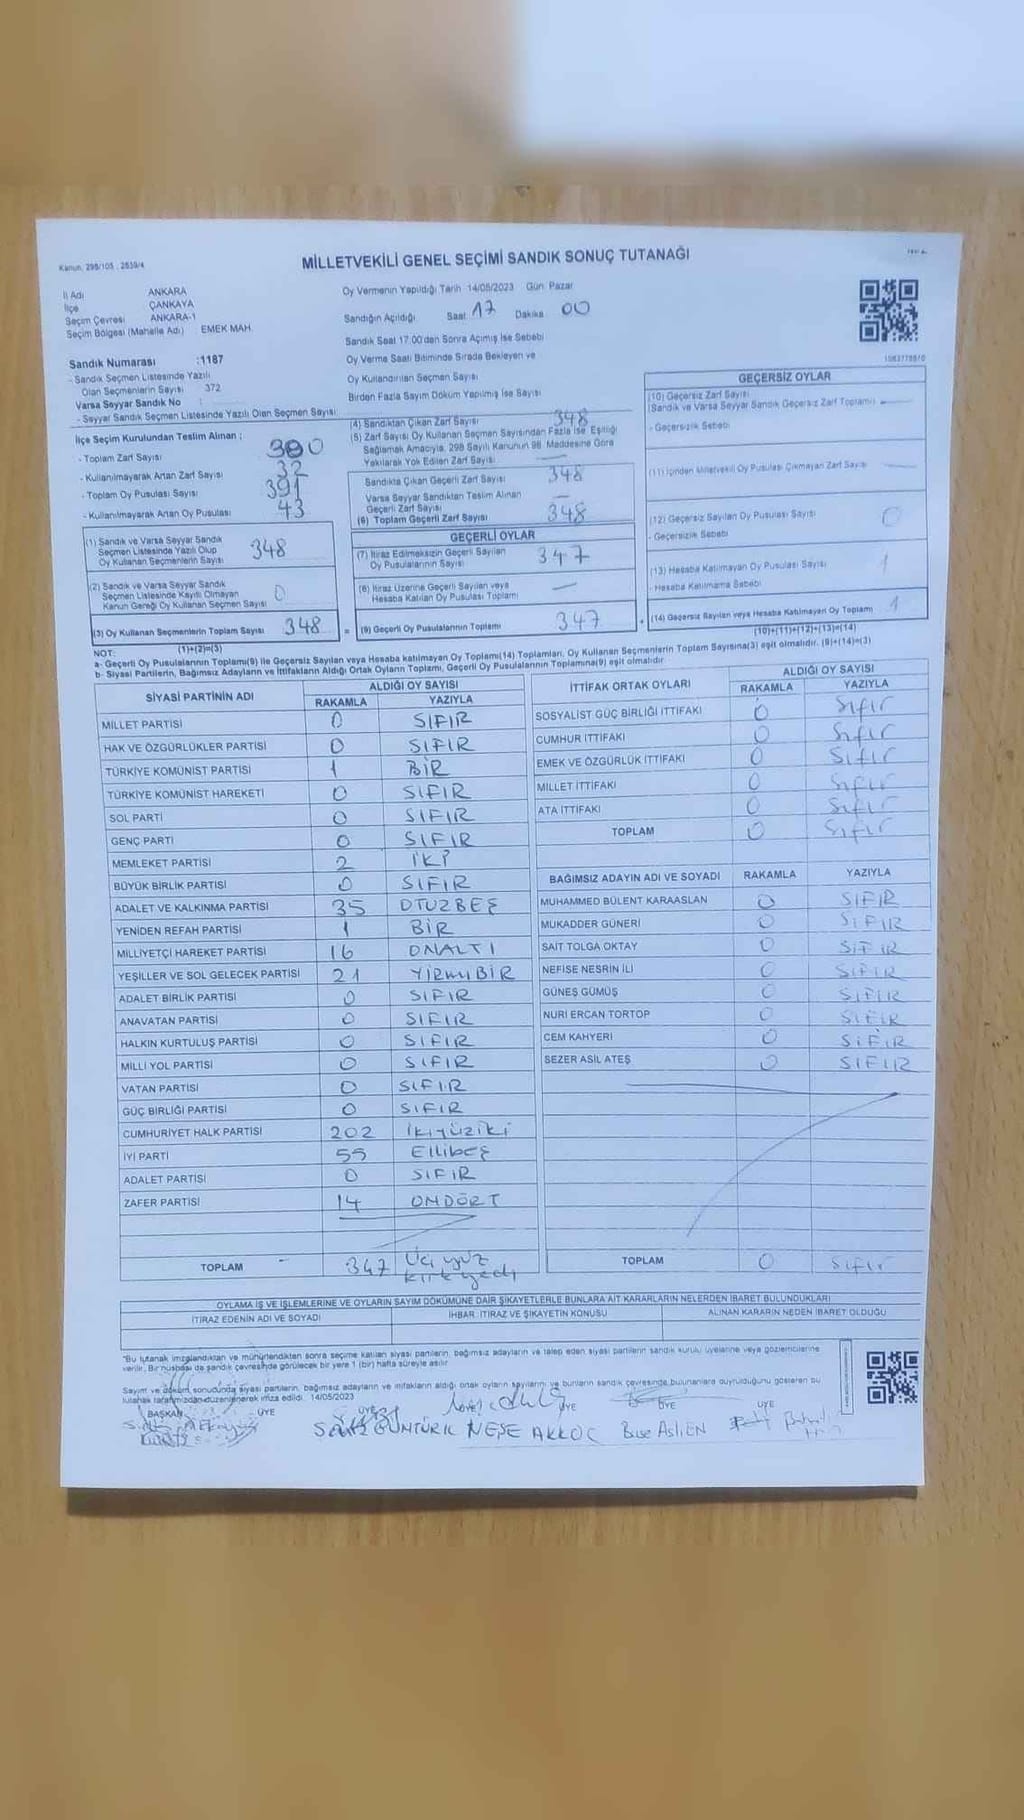 MİLLETVEKİLİ GENEL SEÇİMİ SANDIK SONUÇ TUTANAĞI
Kanun, 298/105, 2839/4
İl Adı ANKARA
İlçe ÇANKAYA
Seçim Çevresi ANKARA-1
Seçim Bölgesi (Mahalle Adı) EMEK MAH.
Sandık Numarası :1187
- Sandık Seçmen Listesinde Yazılı
Olan Seçmenlerin Sayısı 372
Varsa Seyyar Sandık No :
- Seyyar Sandık Seçmen Listesinde Yazılı Olan Seçmen Sayısı
Oy Vermenin Yapıldığı Tarih 14/05/2023 Gün Pazar
Sandığın Açıldığı Saat 17 Dakika 00
Sandık Saat 17.00'den Sonra Açılmış İse Sebebi
Oy Verme Saati Bitiminde Sırada Bekleyen ve
Oy Kullandırılan Seçmen Sayısı
Birden Fazla Sayım Döküm Yapılmış İse Sayısı
İlçe Seçim Kurulundan Teslim Alınan :
- Toplam Zarf Sayısı
- Kullanılmayarak Artan Zarf Sayısı 32
- Toplam Oy Pusulası Sayısı 391
- Kullanılmayarak Artan Oy Pusulası 43
(1) Sandık ve Varsa Seyyar Sandık
Seçmen Listesinde Yazılı Olup
Oy Kullanan Seçmenlerin Sayısı 348
(2) Sandık ve Varsa Seyyar Sandık
Seçmen Listesinde Kayıtlı Olmayan
Kanun Gereği Oy Kullanan Seçmen Sayısı 0
(3) Oy Kullanan Seçmenlerin Toplam Sayısı 348
(1)+(2)=(3)
(4) Sandıktan Çıkan Zarf Sayısı 348
(5) Zarf Sayısı Oy Kullanan Seçmen Sayısından Fazla İse Eşitliği
Sağlamak Amacıyla, 298 Sayılı Kanunun 98. Maddesine Göre
Yakılarak Yok Edilen Zarf Sayısı —
Sandıkta Çıkan Geçerli Zarf Sayısı 348
Varsa Seyyar Sandıktan Teslim Alınan
Geçerli Zarf Sayısı —
(6) Toplam Geçerli Zarf Sayısı 348
GEÇERLİ OYLAR
(7) İtiraz Edilmeksizin Geçerli Sayılan
Oy Pusulalarının Sayısı 347
(8) İtiraz Üzerine Geçerli Sayılan veya
Hesaba Katılan Oy Pusulası Toplamı —
= (9) Geçerli Oy Pusulalarının Toplamı 347
GEÇERSİZ OYLAR
(10) Geçersiz Zarf Sayısı
(Sandık ve Varsa Seyyar Sandık Geçersiz Zarf Toplamı) —
- Geçersizlik Sebebi
(11) İçinden Milletvekili Oy Pusulası Çıkmayan Zarf Sayısı —
(12) Geçersiz Sayılan Oy Pusulası Sayısı 0
- Geçersizlik Sebebi
(13) Hesaba Katılmayan Oy Pusulası Sayısı 1
- Hesaba Katılmama Sebebi
+ (14) Geçersiz Sayılan veya Hesaba Katılmayan Oy Toplamı 1
(10)+(11)+(12)+(13)=(14)
NOT:
a- Geçerli Oy Pusulalarının Toplamı(9) ile Geçersiz Sayılan veya Hesaba katılmayan Oy Toplamı(14) Toplamları, Oy Kullanan Seçmenlerin Toplam Sayısına(3) eşit olmalıdır. (9)+(14)=(3)
b- Siyasi Partilerin, Bağımsız Adayların ve İttifakların Aldığı Ortak Oyların Toplamı, Geçerli Oy Pusulalarının Toplamına(9) eşit olmalıdır
SİYASİ PARTİNİN ADI ALDIĞI OY SAYISI
RAKAMLA YAZIYLA
MİLLET PARTİSİ 0 SIFIR
HAK VE ÖZGÜRLÜKLER PARTİSİ 0 SIFIR
TÜRKİYE KOMÜNİST PARTİSİ 1 BİR
TÜRKİYE KOMÜNİST HAREKETİ 0 SIFIR
SOL PARTİ 0 SIFIR
GENÇ PARTİ 0 SIFIR
MEMLEKET PARTİSİ 2 İKİ
BÜYÜK BİRLİK PARTİSİ 0 SIFIR
ADALET VE KALKINMA PARTİSİ 35 OTUZBEŞ
YENİDEN REFAH PARTİSİ 1 BİR
MİLLİYETÇİ HAREKET PARTİSİ 16 ONALTI
YEŞİLLER VE SOL GELECEK PARTİSİ 21 YİRMİBİR
ADALET BİRLİK PARTİSİ 0 SIFIR
ANAVATAN PARTİSİ 0 SIFIR
HALKIN KURTULUŞ PARTİSİ 0 SIFIR
MİLLİ YOL PARTİSİ 0 SIFIR
VATAN PARTİSİ 0 SIFIR
GÜÇ BİRLİĞİ PARTİSİ 0 SIFIR
CUMHURİYET HALK PARTİSİ 202 İkiyüziki
İYİ PARTİ 55 Ellibeş
ADALET PARTİSİ 0 SIFIR
ZAFER PARTİSİ 14 ONDÖRT
TOPLAM 347 Üç yüz
kırkyedi
İTTİFAK ORTAK OYLARI ALDIĞI OY SAYISI
RAKAMLA YAZIYLA
SOSYALİST GÜÇ BİRLİĞİ İTTİFAKI 0 Sıfır
CUMHUR İTTİFAKI 0 Sıfır
EMEK VE ÖZGÜRLÜK İTTİFAKI 0 Sıfır
MİLLET İTTİFAKI 0 Sıfır
ATA İTTİFAKI 0 Sıfır
TOPLAM 0 Sıfır
BAĞIMSIZ ADAYIN ADI VE SOYADI RAKAMLA YAZIYLA
MUHAMMED BÜLENT KARAASLAN 0 SIFIR
MUKADDER GÜNERİ 0 SIFIR
SAİT TOLGA OKTAY 0 SIFIR
NEFİSE NESRİN İLİ 0 SIFIR
GÜNEŞ GÜMÜŞ 0 SIFIR
NURİ ERCAN TORTOP 0 SIFIR
CEM KAHYERİ 0 SIFIR
SEZER ASİL ATEŞ 0 SIFIR
TOPLAM 0 Sıfır
OYLAMA İŞ VE İŞLEMLERİNE VE OYLARIN SAYIM DÖKÜMÜNE DAİR ŞİKAYETLERLE BUNLARA AİT KARARLARIN NELERDEN İBARET BULUNDUKLARI
İTİRAZ EDENİN ADI VE SOYADI İHBAR, İTİRAZ VE ŞİKAYETİN KONUSU ALINAN KARARIN NEDEN İBARET OLDUĞU
"Bu tutanak imzalandıktan ve mühürlendikten sonra seçime katılan siyasi partilerin, bağımsız adayların ve talep eden siyasi partilerin sandık kurulu üyelerine veya gözlemcilerine
verilir. Bir nüshası da sandık çevresinde görülecek bir yere 1 (bir) hafta süreyle asılır.
Sayım ve döküm sonucunda siyasi partilerin, bağımsız adayların ve ittifakların aldığı ortak oyların sayılarını ve bunların sandık çevresinde bulunanlara duyrulduğunu gösteren bu
tutanak tarafımızdan düzenlenerek imza edildi. 14/05/2023
BAŞKAN ÜYE ÜYE ÜYE ÜYE ÜYE
GÜNTÜRK NEŞE AKKOÇ Buse AsLIEN